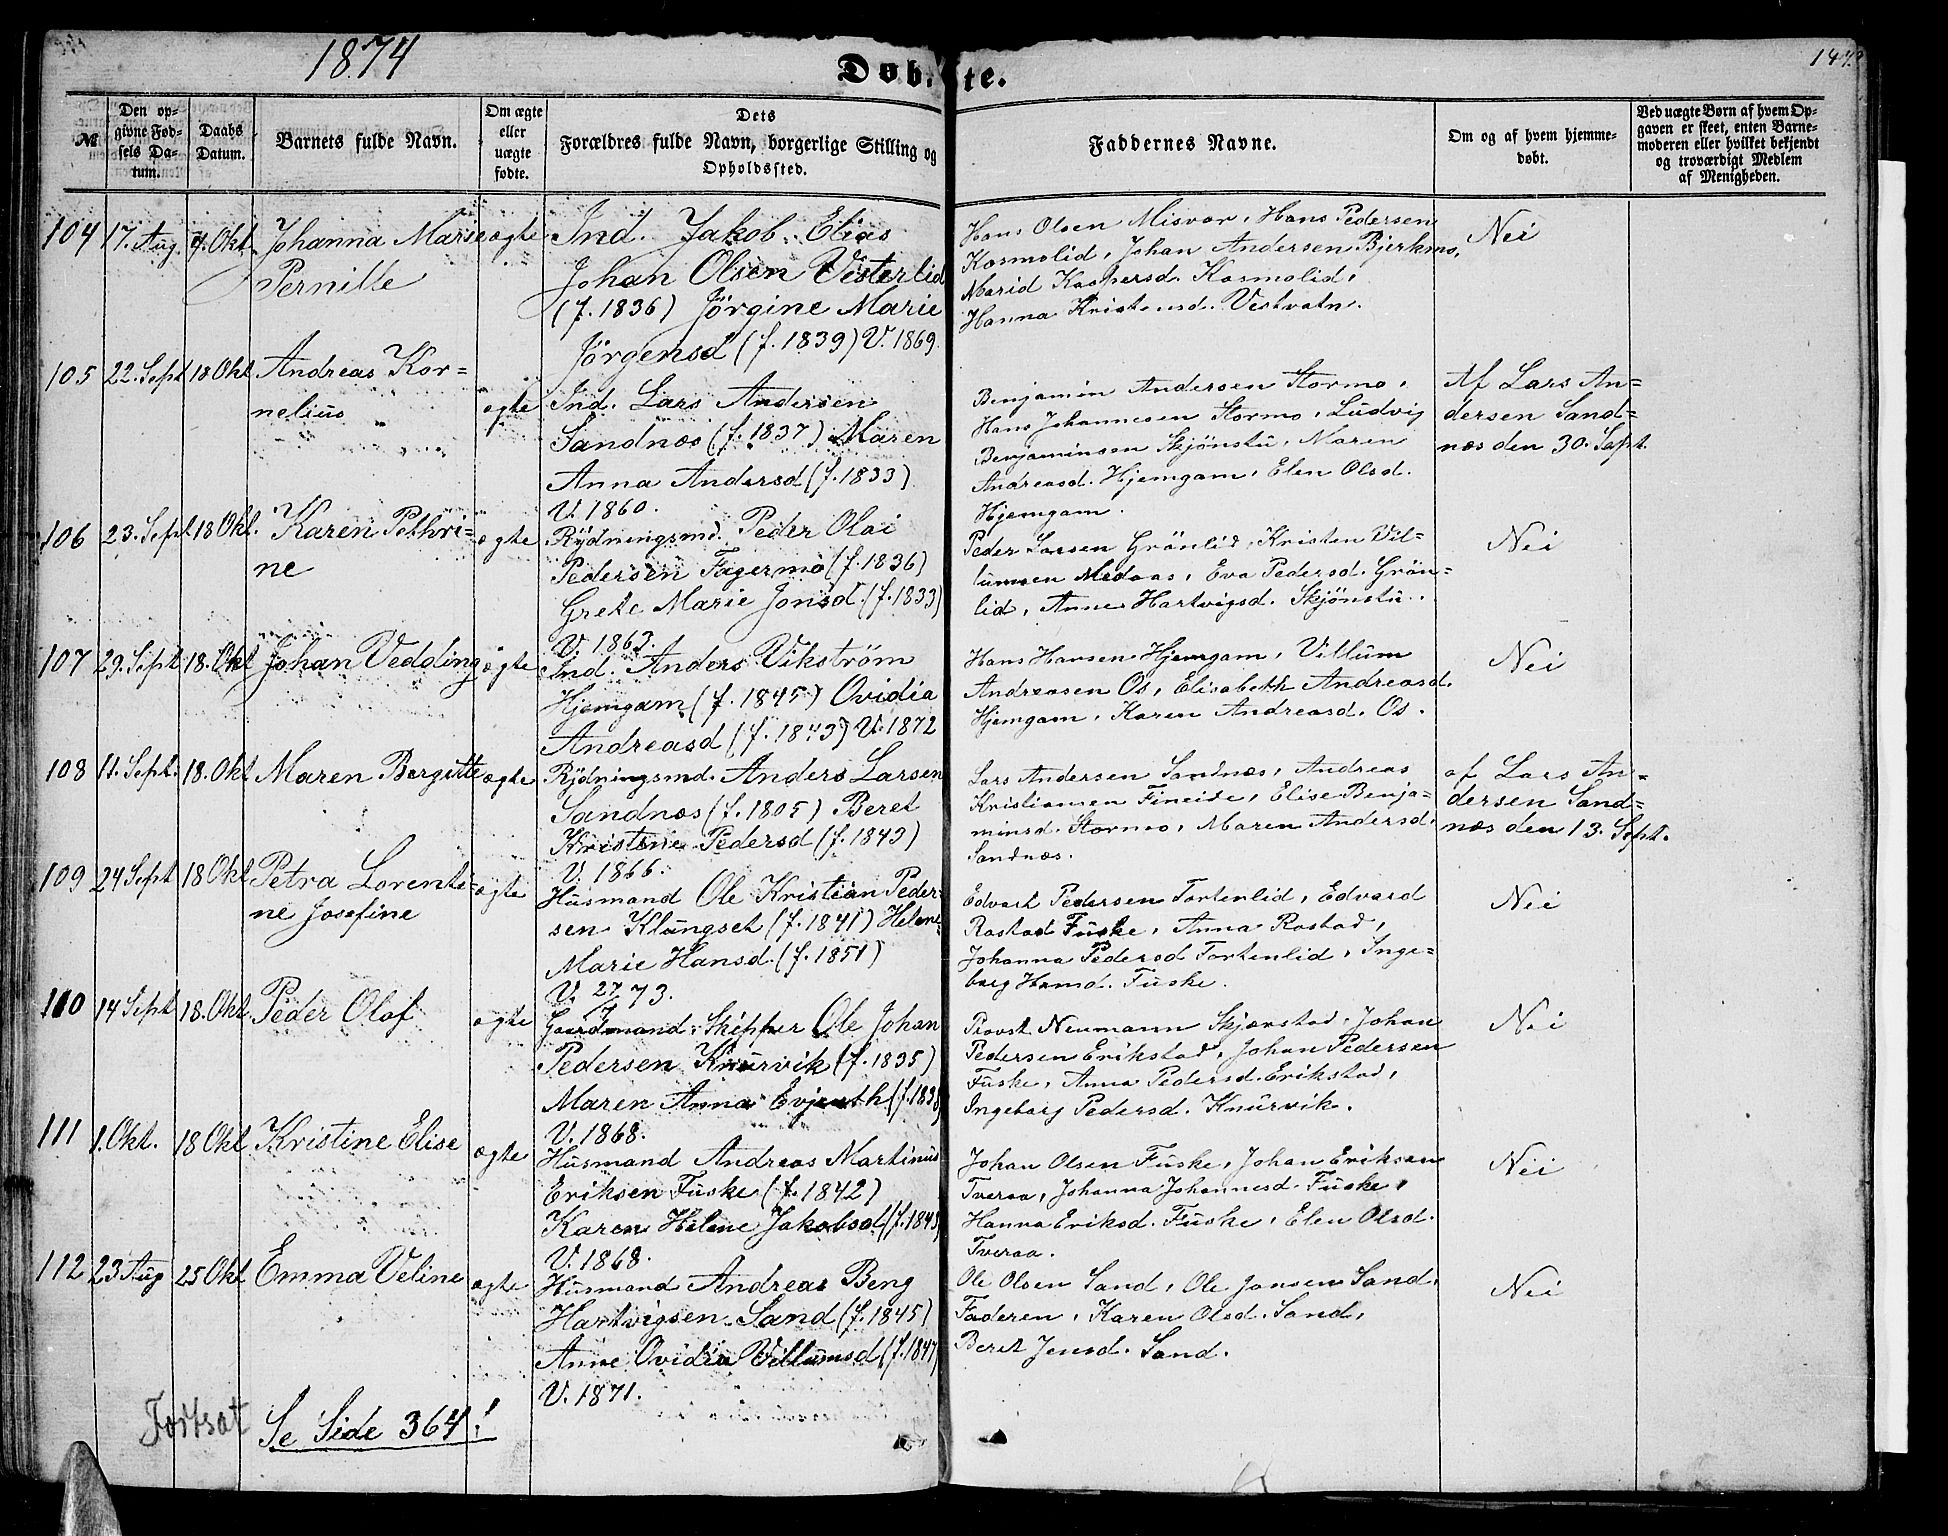 1874
Døbte.
147.
№
Den opgivne Fødsels Datum.
Daabs Datum.
Barnets fulde Navn.
Om ægte eller uægte fødte.
Dets Forældres fulde Navn, borgerlige Stilling og Opholdssted.
Faddernes Navne.
Om og af hvem hjemmedøbt.
Ved uægte Børn af hvem Opgaven er skeet, enten Barnemoderen eller hvilket bekjendt og troværdigt Medlem af Menigheden.
104 17. Aug. 4. Okt. Johanna Marie
Pernille
ægte
Ind. Jakob Elias
Johan Olsen Vesterlid
(f. 1836) Jörgine Marie
Jörgensd (f. 1839) V. 1869.
Hans Olsen Misvær, Hans Pedersen
Kosmolid, Johan Andersen Bjerkmo,
Marid Kaspersd. Kosmolid,
Hanna Kristensd. Vestvatn.
Nei
105 22. Sept 18 Okt Andreas Kor=
nelius
ægte
Ind. Lars Andersen
Sandnæs (f. 1837) Maren
Anna Andersd (f. 1833)
V. 1860.
Benjamin Andersen Stormo,
Hans Johannesen Stormo, Ludvig
Benjaminsen Skjönstu, Maren
Andreasd. Hjemgam, Elen Olsd.
Hjemgam.
Af Lars An=
dersen Sand=
næs den 30. Sept.
106 23. Sept 18 Okt. Karen Pethri=
ne
ægte
Rydningsmd. Peder Olai
Pedersen Fagermo (f. 1836)
Grete Marie Jonsd. (f. 1833)
V. 1863.
Peder Larsen Grönlid, Kristen Vil=
lumsen Medaas, Eva Pedersd. Grön=
lid, Anne Hartvigsd. Skjönstu.
Nei
107 29. Sept 18. Okt Johan Vedding
ægte
Ind. Anders Vikström
Hjemgam (f. 1845) Ovidia
Andreasd (f. 1843) V. 1872
Hans Hansen Hjemgam, Villum
Andreasen Os, Elisabeth Andreasd.
Hjemgam, Karen Andreasd. Os.
Nei
108 11. Sept. 18. Okt Maren Bergitte
ægte
Rydningsmd. Anders Larsen
Sandnæs (f. 1805) Beret
Kristine Pedersd (f. 1843)
V. 1866.
Lars Andersen Sandnæs, Andreas
Kristiansen Fineide, Elise Benja=
minsd. Stormo, Maren Andersd.
Sandnæs.
af Lars An=
dersen Sand=
næs den 13. Sept.
109 24 Sept 18 Okt Petra Lorenti=
ne Josefine
ægte
Husmand Ole Kristian Peder=
sen Klungset (f. 1841) Helene
Marie Hansd. (f. 1851)
V. 27/7 73.
Edvart Pedersen Tortenlid, Edvard
Rostad Fuske, Anna Rostad,
Johanna Pedersd Tortenlid, Inge=
borg Hansd. Fuske.
Nei
110 14 Sept 18. Okt Peder Olaf
ægte
Gaardmand, Skipper Ole Johan
Pedersen Knurvik (f. 1835)
Maren Anna Evjenth (f. 1838)
V. 1868.
Provst Neumann Skjærstad, Johan
Pedersen Erikstad, Johan Pedersen
Fuske, Anna Pedersd. Erikstad,
Ingeborg Pedersd. Knurvik.
Nei
111 1. Okt. 18 Okt Kristine Elise
ægte
Husmand Andreas Martinus
Eriksen Fuske (f. 1842)
Karen Helene Jakobsd (f. 1845)
V. 1868.
Johan Olsen Fuske, Johan Eriksen
Tveraa, Johanna Johannesd. Fuske,
Hanna Eriksd. Fuske, Elen Olsd.
Tveraa.
Nei
112 23 Aug 25 Okt Emma Veline
ægte
Husmand Andreas Beng
Hartvigsen Sand (f. 1845)
Anne Ovidia Villumsd (f. 1847)
V. 1871.
Ole Olsen Sand, Ole Jonsen Sand,
Faderen, Karen Olsd. Sand,
Beret Jensd. Sand.
Nei
Fortsat
Se Side 364!